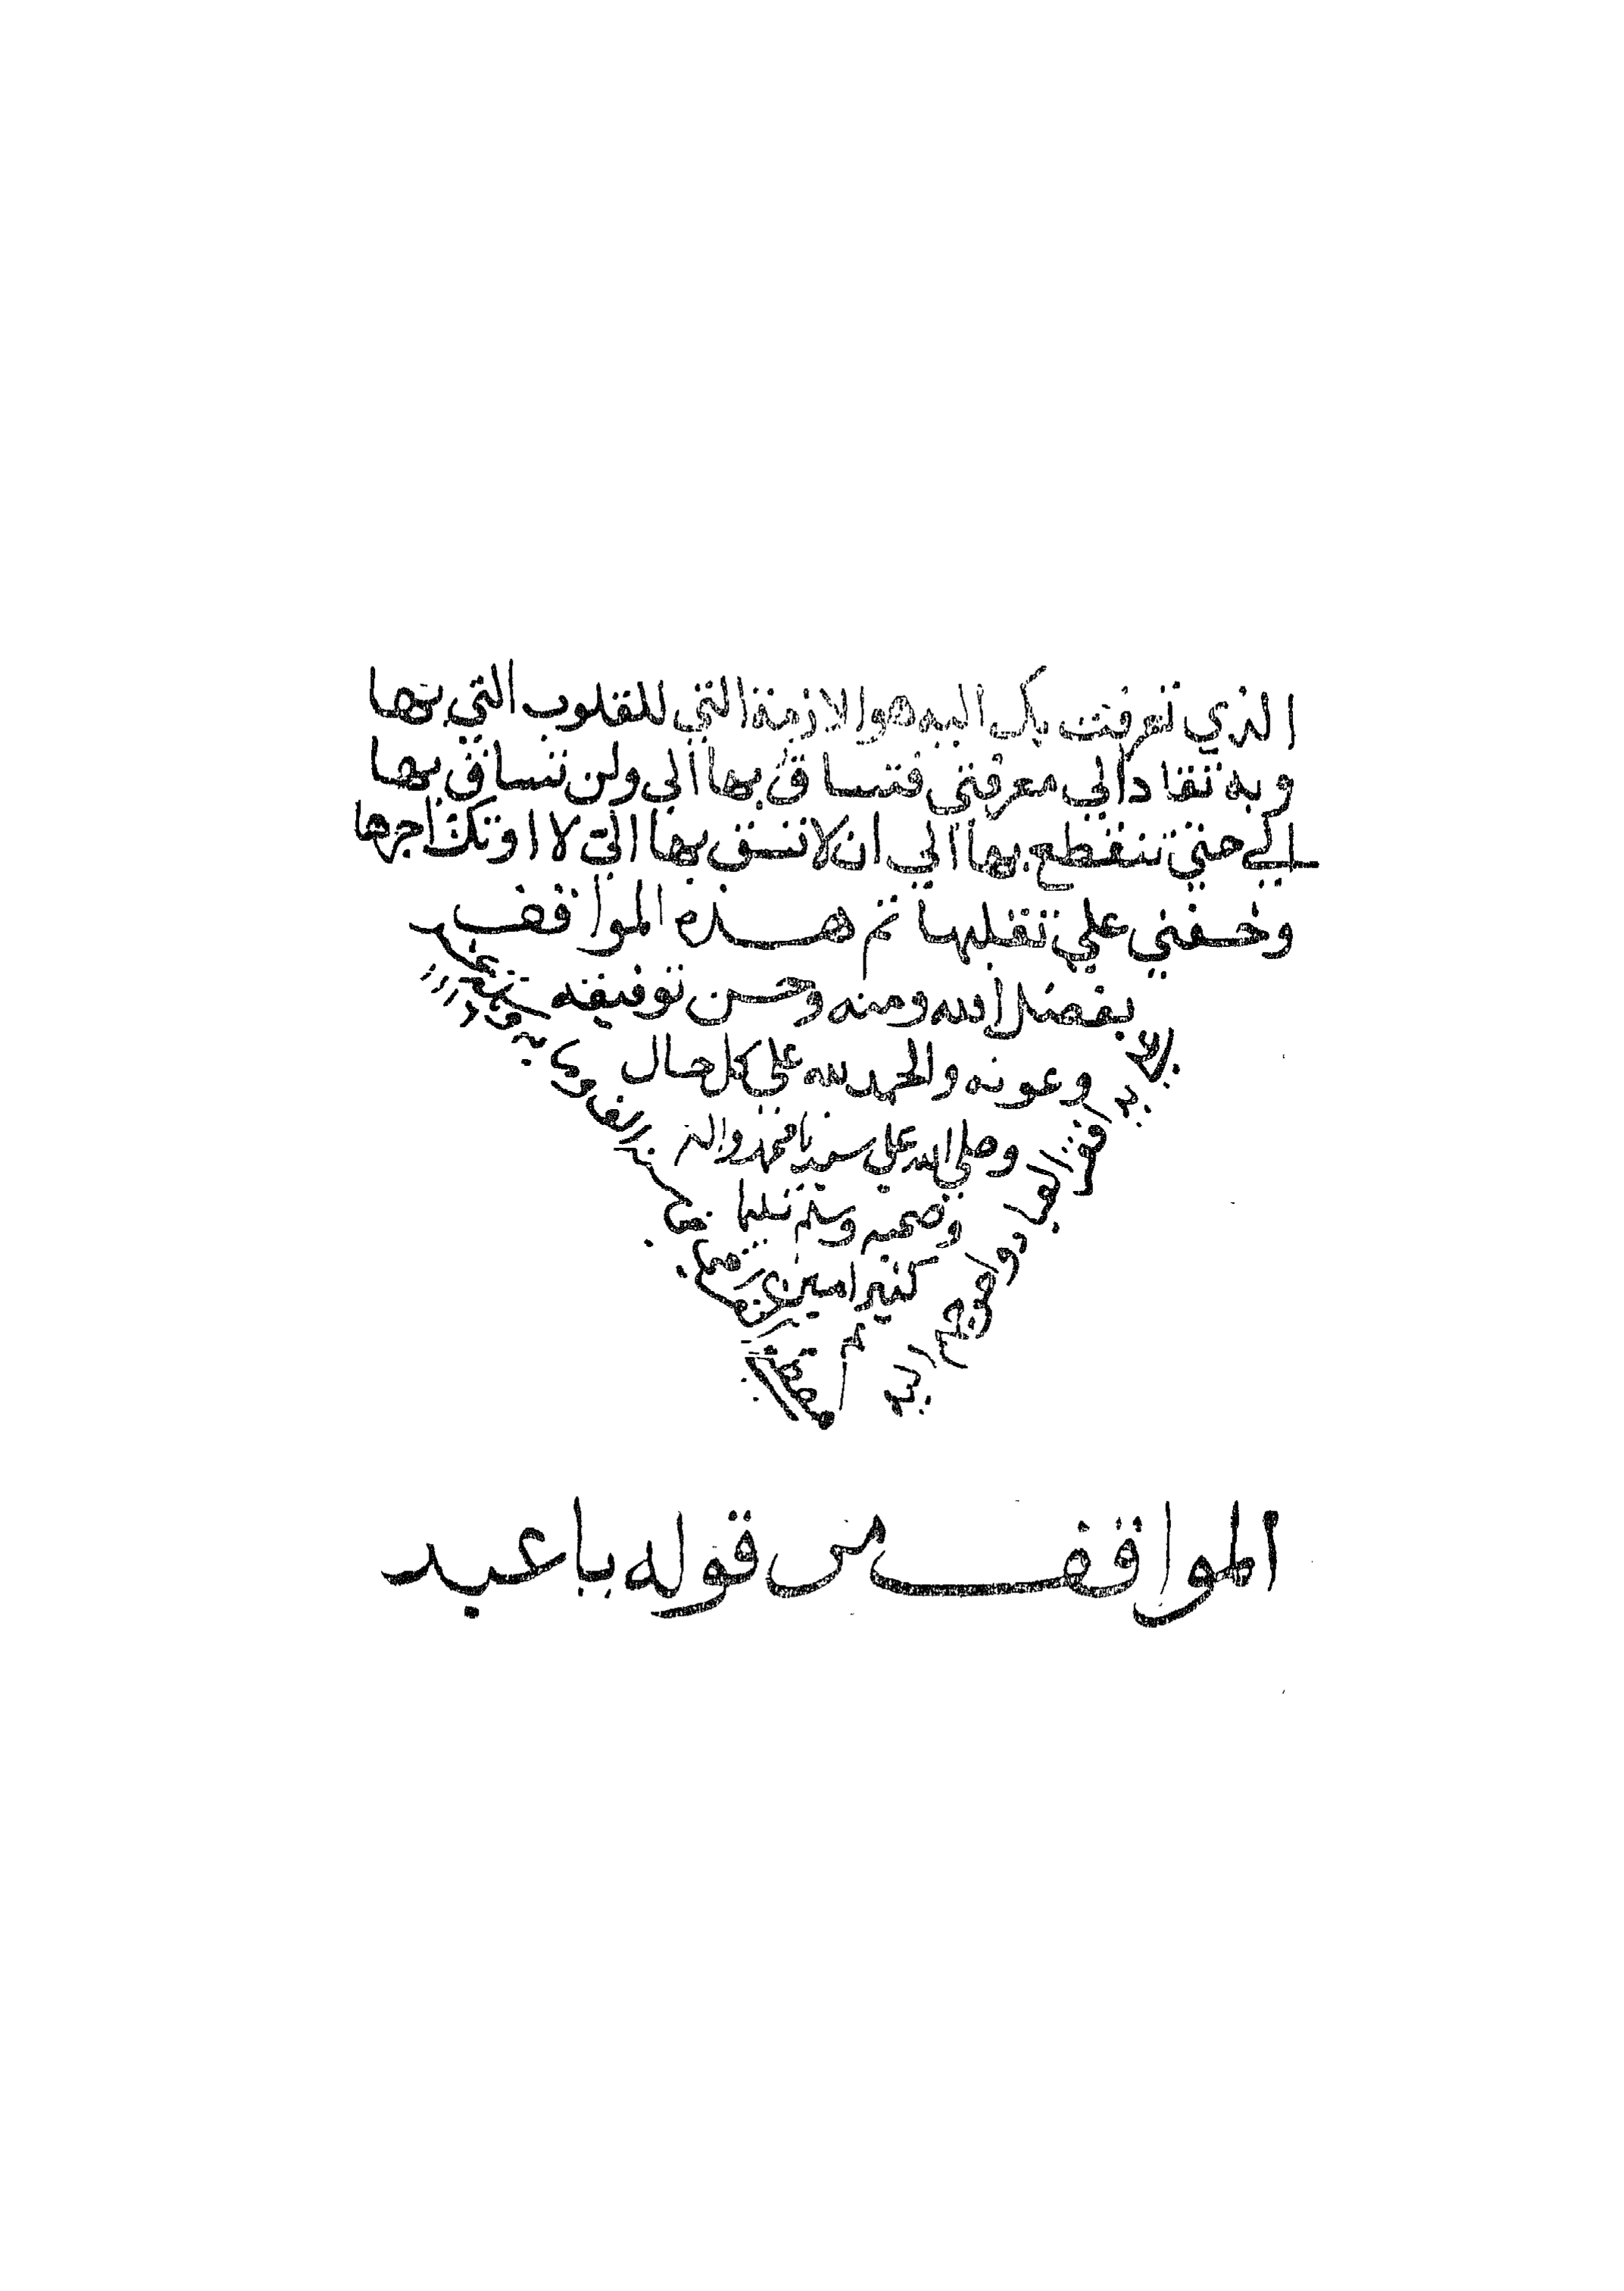 الذي تعرفت بك اليه هو الازمة التي للقلوب التي بها
وبه تقاد الي معرفتي فتساق بها الي ولن تنساق بها
الي حتي تنقطع بها الي ان لا تنسق بها التي لا اوتك اجرها
وخفني علي تقلبها تم هذه المواقف
بفضل الله ومنه وحسن توفيقه
وعونه والحمد لله علي كل حال
وصلي الله علي سيدنا محمد واله
وصحبه وسلم تسليما
كثيرا امين
تم
افقر العباد واحوجهم اليه
المواقف من قوله يا عبد